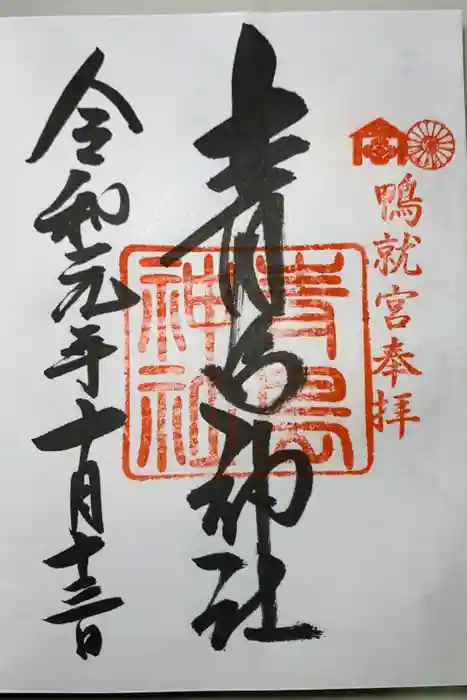 鴨就宮奉拝
青島神社
青島
神社
令和元年十月十三日